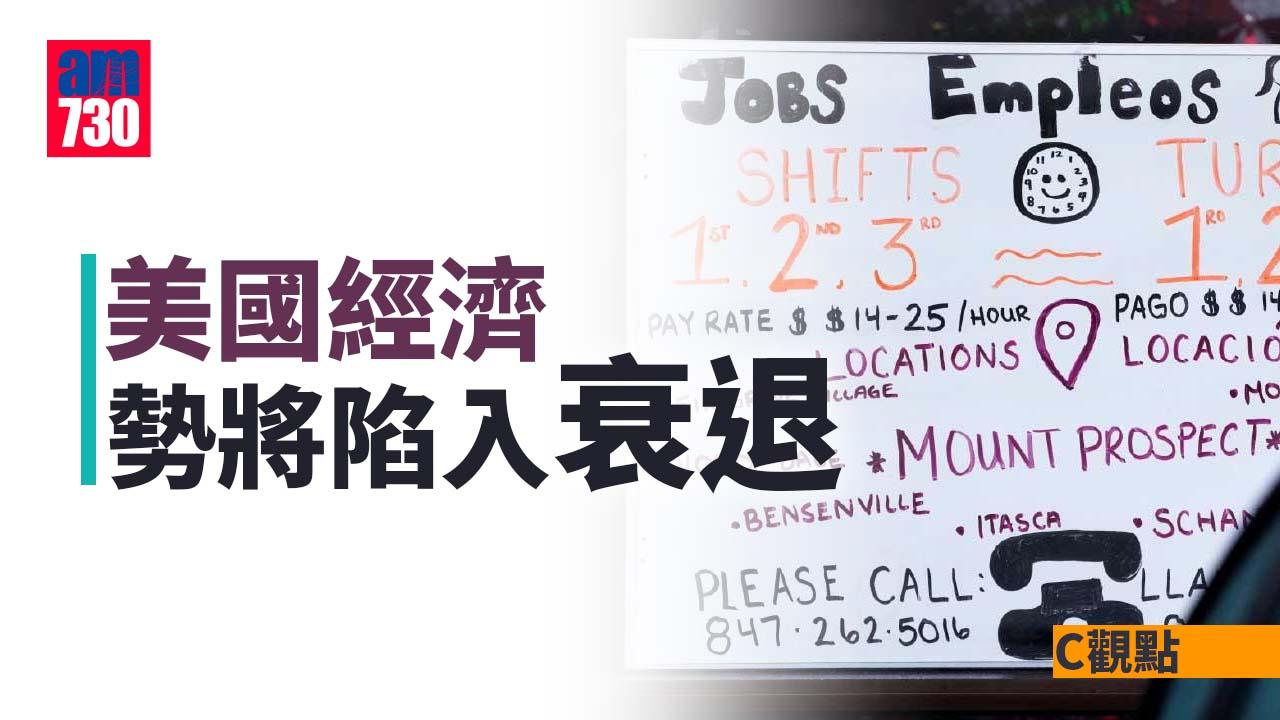 am
730
美國經濟
勢將陷入衰退
JOBS Empleos
SHIFTS TUR
1ST. 2ND. 3RD 1RO. 2
11 12 1
10 2
9 3
8 4
7 6 5
PAY RATE $ $14-25/HOUR PAGO $ $ 14
LOCATIONS LOCACIO
VILLAGE •MO
*MOUNT PROSPECT*
•BENSENVILLE
•ITASCA •SCHA
PLEASE CALL: LLA
847·262·5016
C觀點